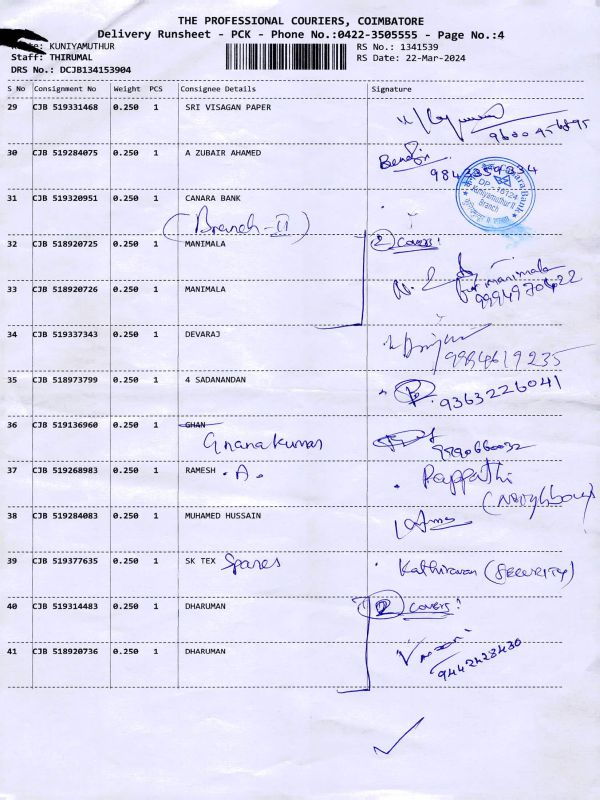 THE PROFESSIONAL COURIERS, COIMBATORE
Delivery Runsheet - PCK - Phone No.:0422-3505555 - Page No.:4
KUNIYAMUTHUR
RS No.: 1341539
Staff: THIRUMAL
RS Date: 22-Mar-2024
DRS No.: DCJB134153904
S No Consignment No Weight PCS Consignee Details Signature
29 CJB 519331468 0.250 1 SRI VISAGAN PAPER
30 CJB 519284075 0.250 1 A ZUBAIR AHAMED
31 CJB 519320951 0.250 1 CANARA BANK
(Branch-II)
Kuniyamuthur II
Branch
32 CJB 518920725 0.250 1 MANIMALA 2 Covers!
for manimala
33 CJB 518920726 0.250 1 MANIMALA
34 CJB 519337343 0.250 1 DEVARAJ
9984619235
35 CJB 518973799 0.250 1 4 SADANANDAN
9363226041
36 CJB 519136960 0.250 1 GHAN
Gnanakumar
37 CJB 519268983 0.250 1 RAMESH . A. Pappathi
(Neighbour)
38 CJB 519284083 0.250 1 MUHAMED HUSSAIN
39 CJB 519377635 0.250 1 SK TEX Spares Kathiravan (Security)
40 CJB 519314483 0.250 1 DHARUMAN 2 Covers!
41 CJB 518920736 0.250 1 DHARUMAN